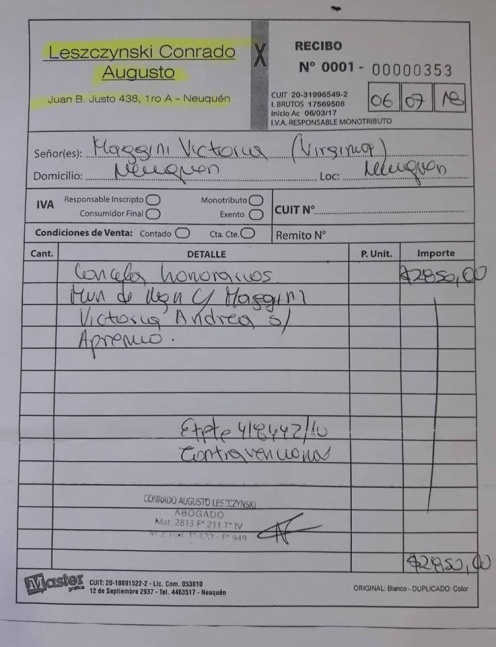 Leszczynski Conrado
Augusto
Juan B. Justo 438, 1ro A - Neuquén
X
RECIBO
Nº 0001 - 00000353
CUIT 20-31996549-2
I. BRUTOS 17569508
Inicio Ac 06/03/17
I.V.A. RESPONSABLE MONOTRIBUTO
06 07 18
Señor(es): Maggini Victoria (Virginia)
Domicilio: Neuquen Loc: Neuquen
IVA
Responsable Inscripto
Monotributo
Consumidor Final
Exento
CUIT Nº
Condiciones de Venta: Contado Cta. Cte.
Remito Nº
Cant. DETALLE P. Unit. Importe
Cancela honorarios $2850,00
Mun de Nqn C/ Maggini
Victoria Andrea s/
Apremio.
Expte 418442/10
Contravenciones
CONRADO AUGUSTO LESZCZYNSKI
ABOGADO
Mat. 2813 Fº 211 Tº IV
$2850,00
Master
gráfica
CUIT: 20-18691522-2 - Lic. Com. 053010
12 de Septiembre 2937 - Tel. 4463517 - Neuquén
ORIGINAL: Blanco - DUPLICADO: Color